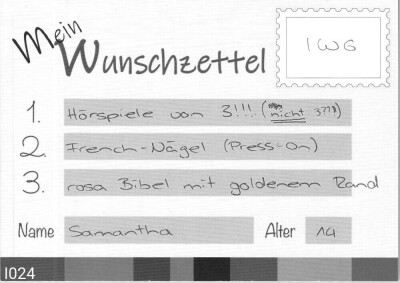 Mein
Wunschzettel
IWG
1. Hörspiele von 3!!! (nicht 3???)
2. French-Nägel (Press-On)
3. rosa Bibel mit goldenem Rand
Name Samantha Alter 14
I024